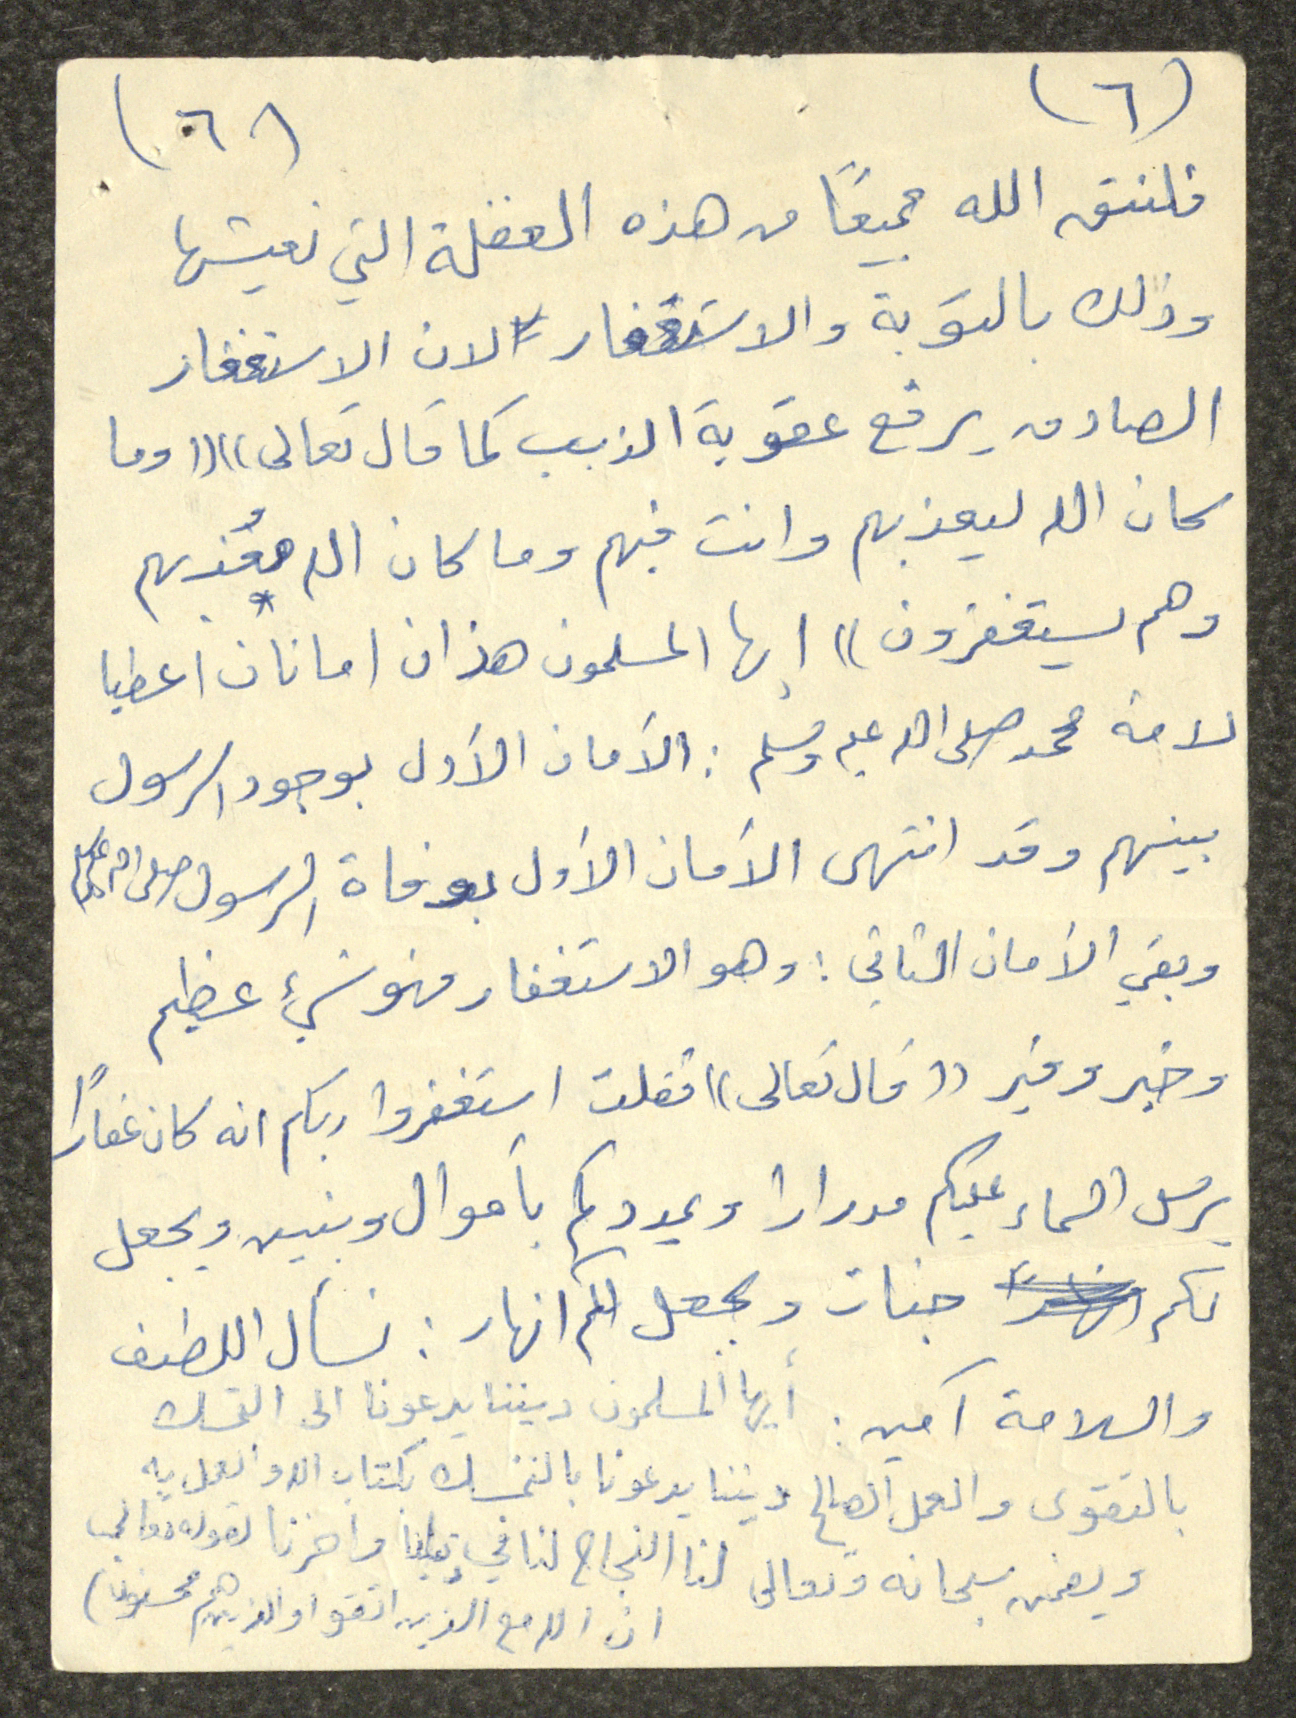 (٦) (٦٨)
فلنتق الله جميعًا من هذه الغفلة التي نعيشها
وذلك بالتوبة والاستغفار لان الاستغفار
الصادق يرفع عقوبة الذنب كما قال تعالى)) ((وما
كان الله ليعذبهم وانت فيهم وما كان الله معُذبهم
وهم يستغفرون)) ايها المسلمون هذان امانان اعطيا
لامة محمد صلى الله عليه وسلم : الأمان الأول بوجود الرسول
بينهم وقد انتهى الأمان الأول بوفاة الرسول صلى الله عليه وسلم
وبقي الأمان الثاني : وهو الاستغفار فهو شيء عظيم
وخير وفير ((قال تعالى)) فقلت استغفروا ربكم انه كان غفارًا
يرسل السماء عليكم مدرارا ويمددكم بأموال وبنين ويجعل
لكم جنات ويجعل لكم انهار : نسأل اللطف
والسلامة آمين : أيها المسلمون ديننا يدعونا الى التمسك
بالتقوى والعمل الصالح ديننا يدعونا بالتمسك بكتاب الله والعمل به
ويضمن سبحانه وتعالى لنا النجاح لنا في واخرنا لقوله تعالى
ان الله مع الذين اتقوا والذين هم محسنون)